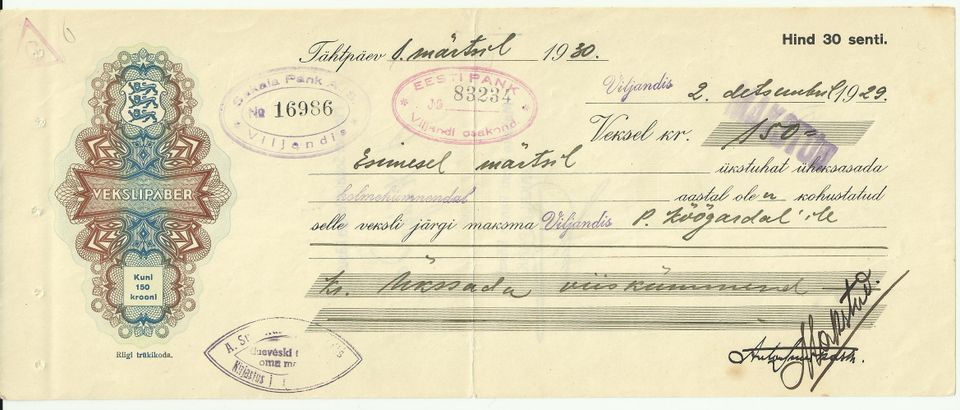 Hind 30 senti.
Tähtpäev 1. märtsil 1930.
Viljandis 2. detsembril 1929.
Sakala Pank A.S.
№ 16986
Viljandis
EESTI PANK
№ 83234
Viljandi osakond.
Veksel kr. 150
MAKSTUD
Esimesel märtsil ükstuhat üheksasada
kolmekümnendal aastal olen kohustatud
selle veksli järgi maksma Viljandis P. Köögardal'ile
kr. Ükssada viiskümmend
VEKSLIPABER
Kuni
150
krooni
Riigi trükikoda.
A.
oma
Kirjastus
Makstud.